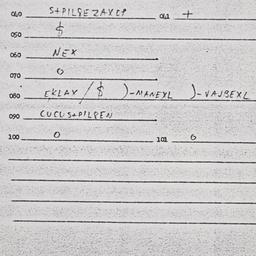 040 S+PILSEZAXEP 041 +
050 $
060 NEX
070 0
080 EKLAX/$ )-MANEXL )-VAJBEXL
090 CUCUS+PILPEN
100 0 101 0